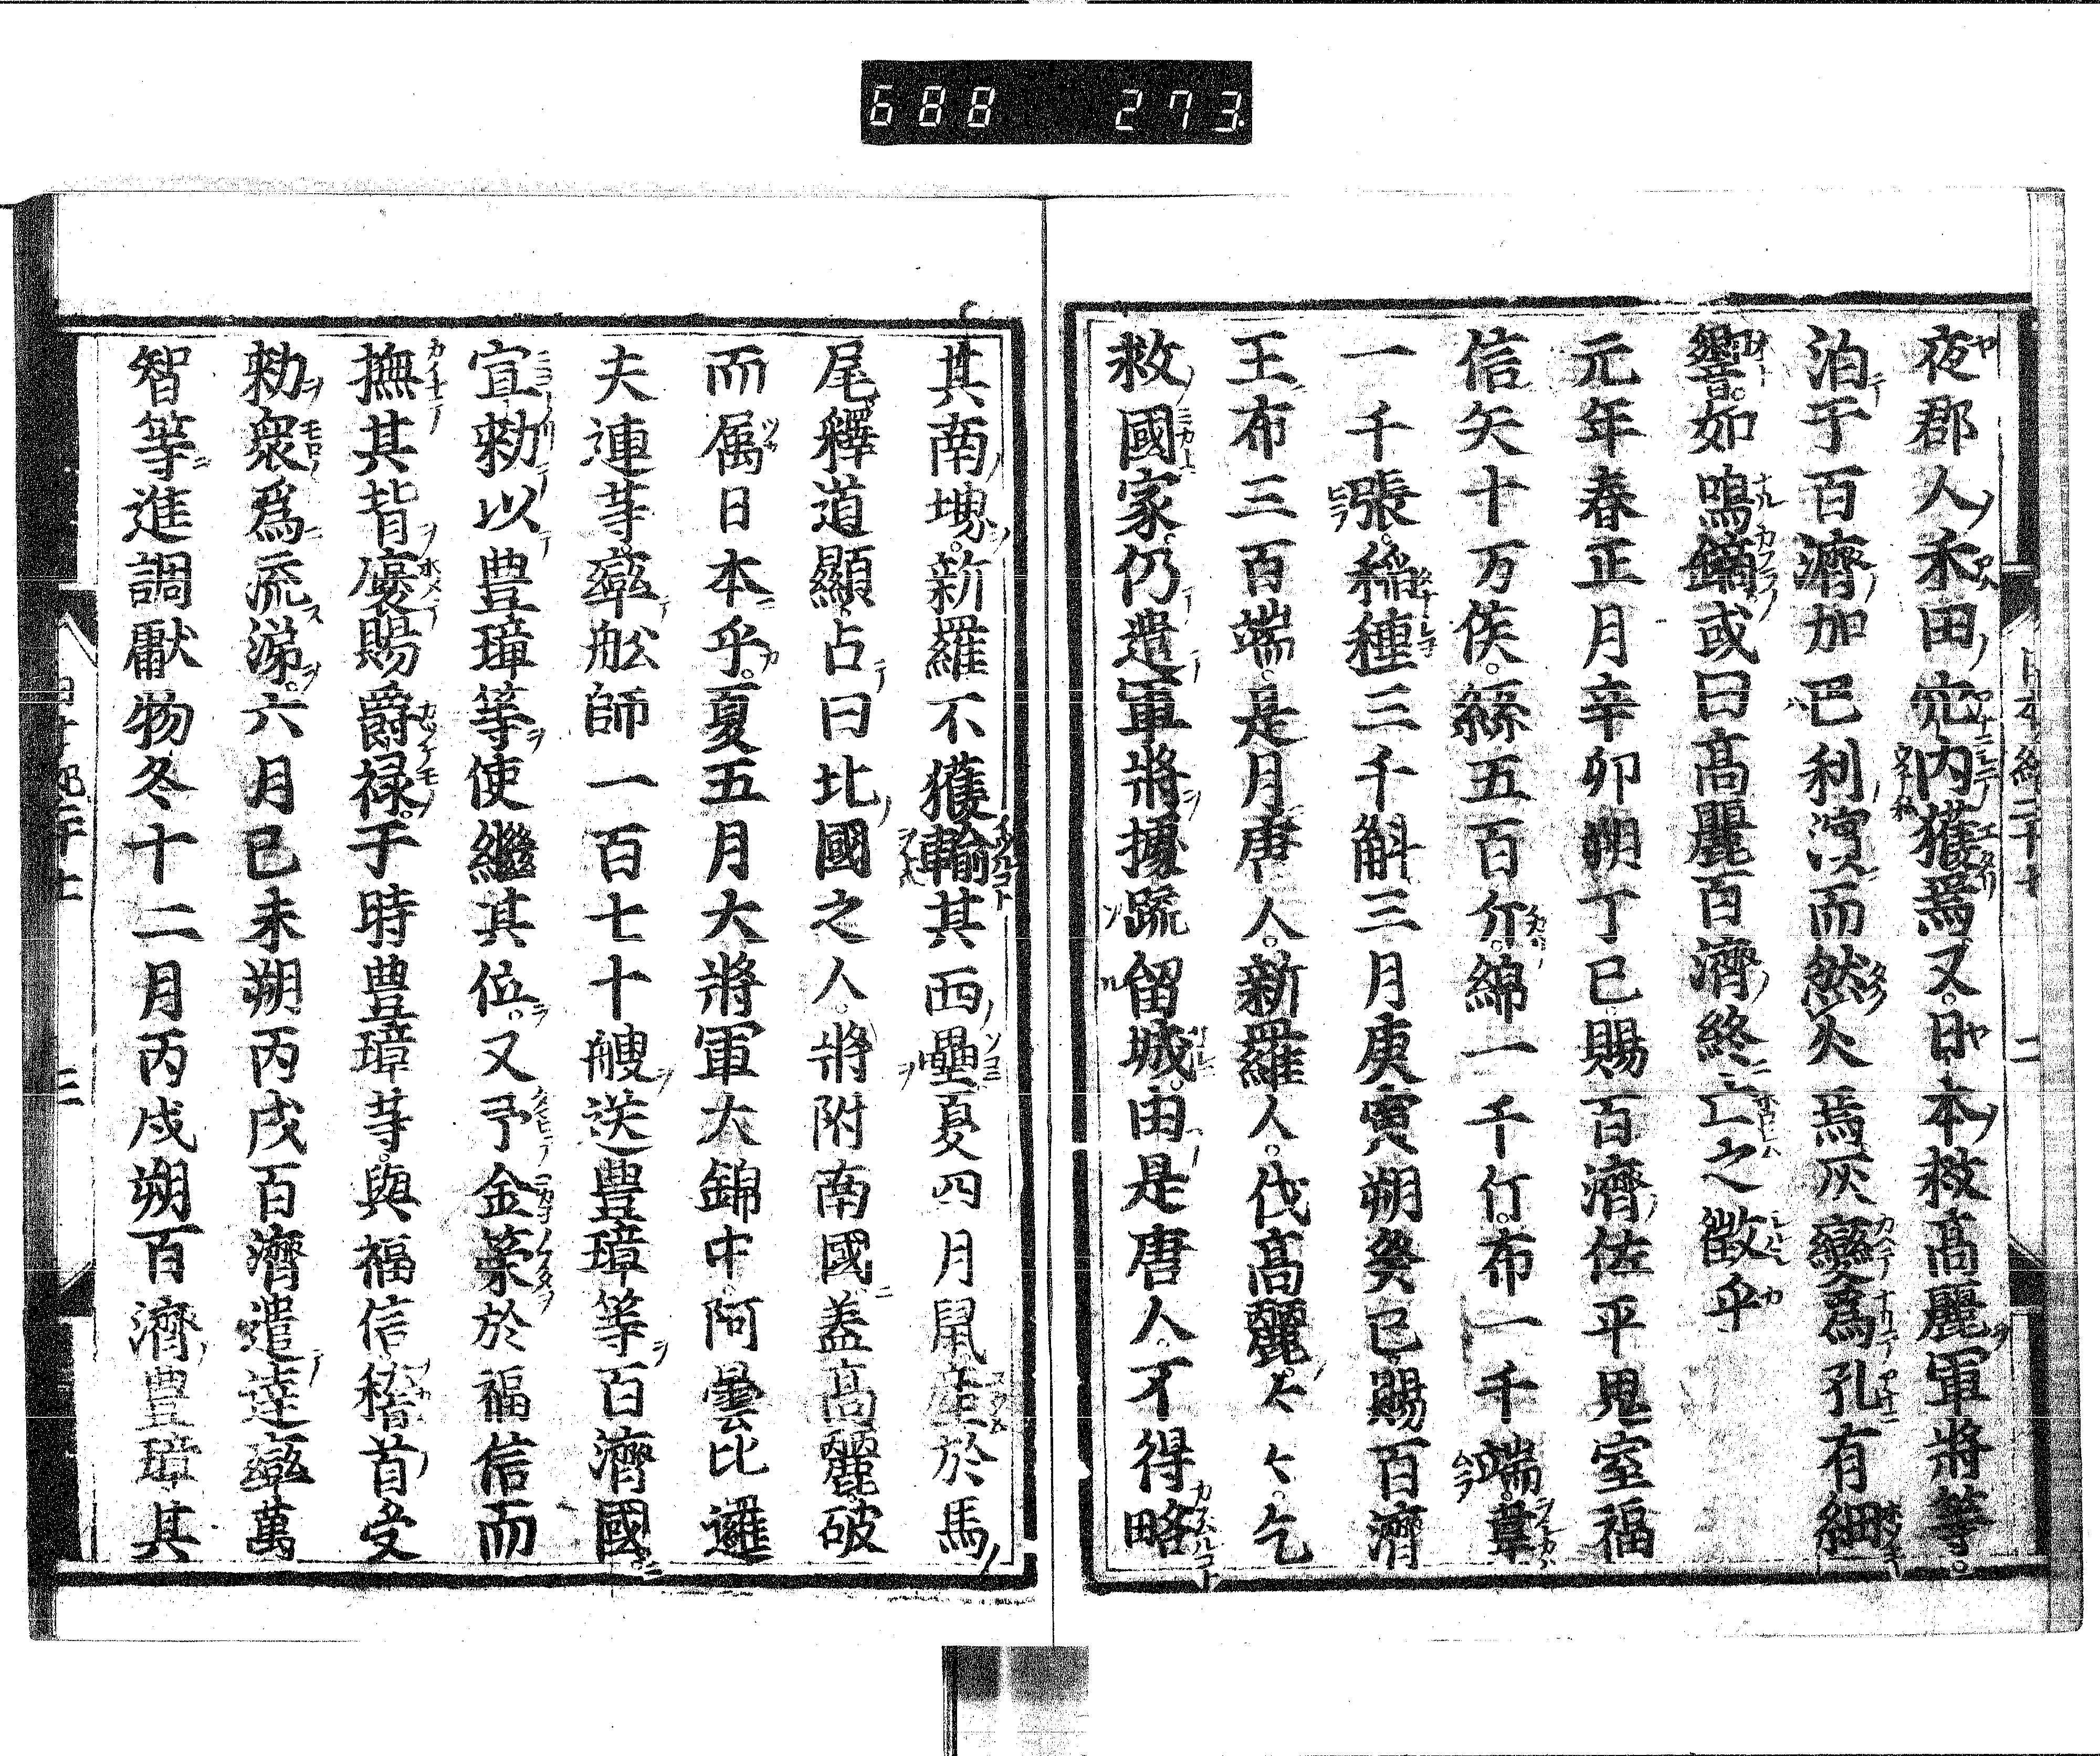 688 273
夜郡人禾田穴内獲焉又日本救高麗軍將等
泊于百濟加巴利濱而然火焉灰變爲孔有細
響如鳴鏑或曰高麗百濟終亡之徵乎
元年春正月辛卯朔丁巳賜百濟佐平鬼室福
信矢十万侯絲五百斤綿一千斤布一千端韋
一千張稲種三千斛三月庚寅朔癸巳賜百濟
王布三百端是月唐人新羅人伐高麗〻〻乞
救國家仍遣軍將據䟽留城由是唐人不得略
其南堺新羅不獲輸其西壘夏四月鼠産於馬
尾釋道顯占曰北國之人將附南國盖高麗破
而属日本乎夏五月大將軍大錦中阿曇比邏
夫連等率舩師一百七十艘送豊璋等百濟國
宣勅以豊璋等使繼其位又予金策於福信而
撫其背褒賜爵禄于時豊璋等與福信稽首受
勅衆爲流涕六月己未朔丙戌百濟遣達率萬
智等進調獻物冬十二月丙戌朔百濟豊璋其